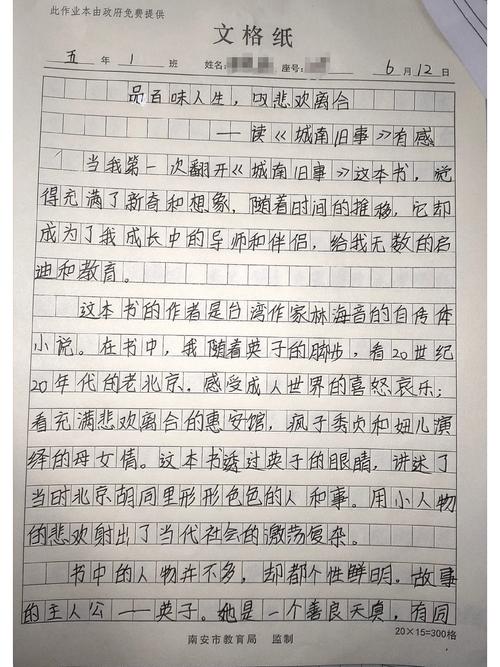 此作业本由政府免费提供
文格纸
五 年 1 班 姓名: 座号: 6 月 12 日
品百味人生，叹悲欢离合
——读《城南旧事》有感
当我第一次翻开《城南旧事》这本书，觉
得充满了新奇和想象，随着时间的推移，它却
成为了我成长中的导师和伴侣，给我无数的启
迪和教育。
这本书的作者是台湾作家林海音的自传体
小说。在书中，我随着英子的脚步，看20世纪
20年代的老北京，感受成人世界的喜怒哀乐；
看充满悲欢离合的惠安馆，疯子秀贞和妞儿演
绎的母女情。这本书透过英子的眼睛，讲述了
当时北京胡同里形形色色的人和事。用小人物
的悲欢射出了当代社会的激荡复杂。
书中的人物并不多，却都个性鲜明。故事
的主人公——英子。她是一个善良天真，有同
南安市教育局 监制
20×15=300格